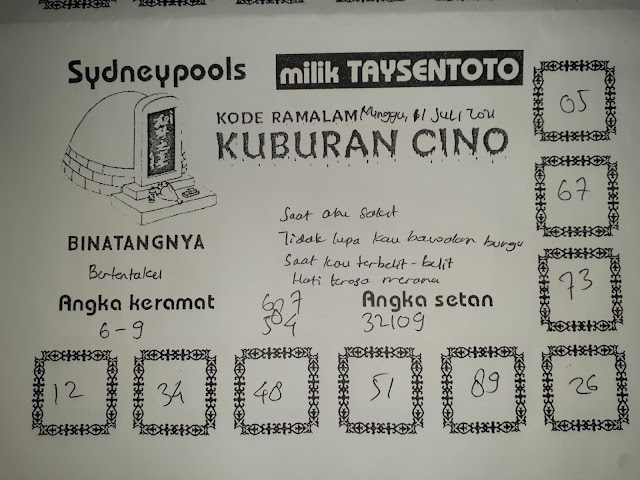 Sydneypools
milik TAYSENTOTO
KODE RAMALAM Minggu, 11 Juli 2021
KUBURAN CINO
05
67
73
BINATANGNYA
Bertentakel
Saat aku Sakit
Tidak lupa kau bawakan bunga
Saat kau terbelit-belit
Hati terasa merana
Angka keramat
6-9
687
54
Angka setan
32109
12
34
48
51
89
26